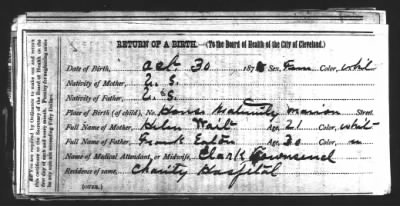 RETURN OF A BIRTH. (To the Board of Health of the City of Cleveland.)
Date of Birth, Oct. 30 187 Sex, Fem Color, whit
Nativity of Mother, U. S.
Nativity of Father, U. S.
Place of Birth (of child), No. Maternity Marion Street.
Full Name of Mother, Helen Wait Age, 21 Color, whit
Full Name of Father, Frank Eaton Age, 30 Color, "
Name of Medical Attendant, or Midwife, Clark Townsend
Residence of same, Charity Hospital
(OVER.)